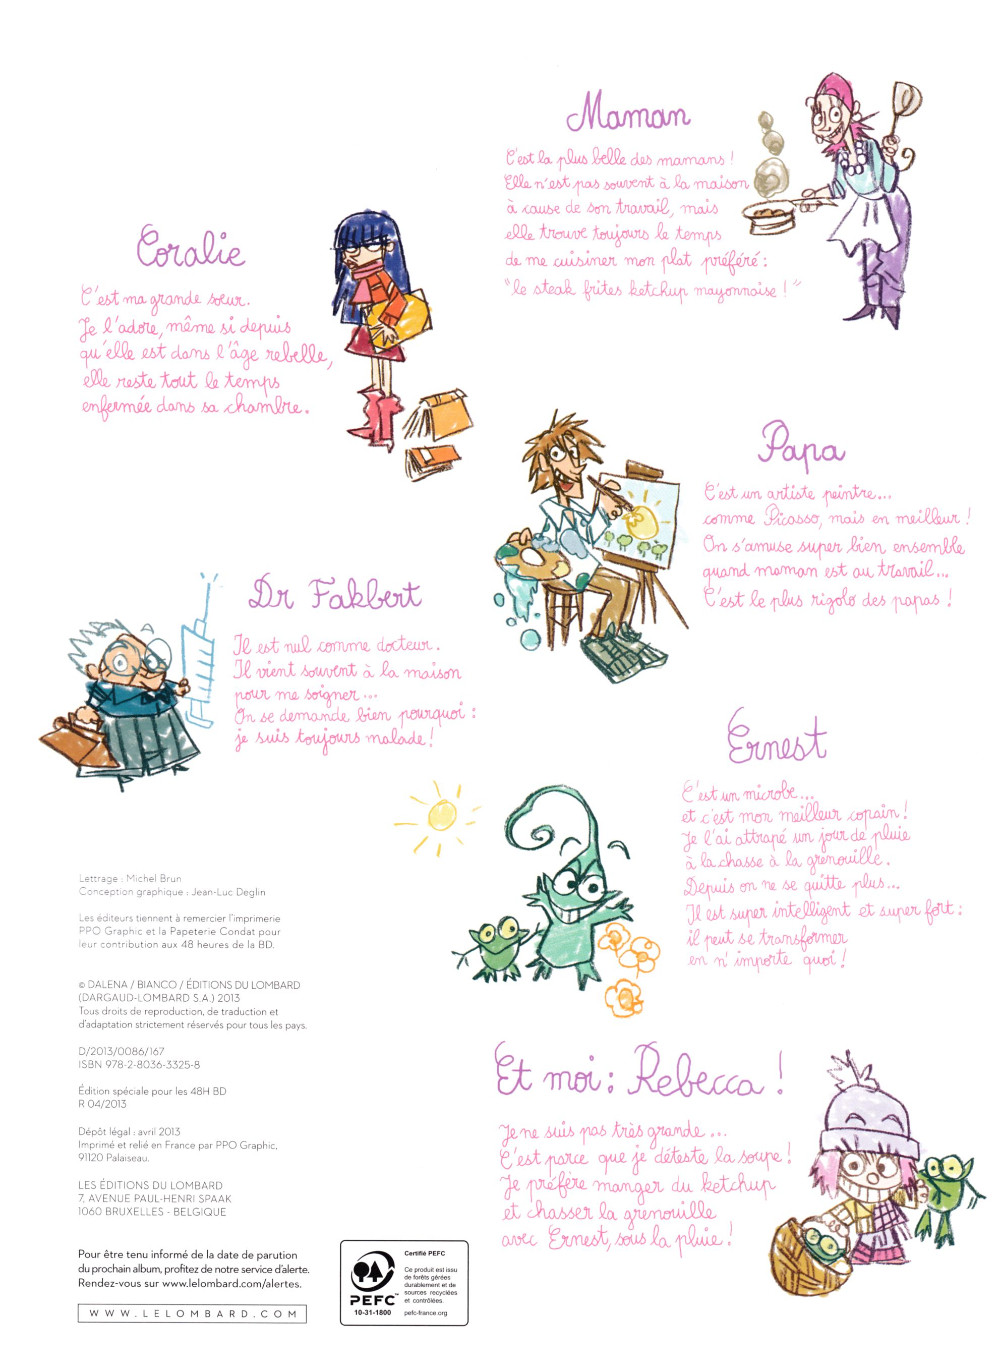 Maman
C'est la plus belle des mamans !
Elle n'est pas souvent à la maison
à cause de son travail, mais
elle trouve toujours le temps
de me cuisiner mon plat préféré :
"le steak frites ketchup mayonnaise !"
Coralie
C'est ma grande sœur.
Je l'adore, même si depuis
qu'elle est dans l'âge rebelle,
elle reste tout le temps
enfermée dans sa chambre.
Papa
C'est un artiste peintre...
comme Picasso, mais en meilleur !
On s'amuse super bien ensemble
quand maman est au travail...
C'est le plus rigolo des papas !
Dr Fakbert
Il est nul comme docteur.
Il vient souvent à la maison
pour me soigner...
On se demande bien pourquoi :
je suis toujours malade !
Ernest
C'est un microbe...
et c'est mon meilleur copain !
Je l'ai attrapé un jour de pluie
à la chasse à la grenouille.
Depuis on ne se quitte plus...
Il est super intelligent et super fort :
il peut se transformer
en n'importe quoi !
Et moi : Rebecca !
Je ne suis pas très grande...
C'est parce que je déteste la soupe !
Je préfère manger du ketchup
et chasser la grenouille
avec Ernest, sous la pluie !
Lettrage : Michel Brun
Conception graphique : Jean-Luc Deglin
Les éditeurs tiennent à remercier l'imprimerie
PPO Graphic et la Papeterie Condat pour
leur contribution aux 48 heures de la BD.
© DALENA / BIANCO / ÉDITIONS DU LOMBARD
(DARGAUD-LOMBARD S.A.) 2013
Tous droits de reproduction, de traduction et
d'adaptation strictement réservés pour tous les pays.
D/2013/0086/167
ISBN 978-2-8036-3325-8
Édition spéciale pour les 48H BD
R 04/2013
Dépôt légal : avril 2013
Imprimé et relié en France par PPO Graphic,
91120 Palaiseau.
LES ÉDITIONS DU LOMBARD
7, AVENUE PAUL-HENRI SPAAK
1060 BRUXELLES - BELGIQUE
Pour être tenu informé de la date de parution
du prochain album, profitez de notre service d'alerte.
Rendez-vous sur www.lelombard.com/alertes.
WWW.LELOMBARD.COM
PEFC™
10-31-1800
Certifié PEFC
Ce produit est issu
de forêts gérées
durablement et de
sources recyclées
et contrôlées.
pefc-france.org